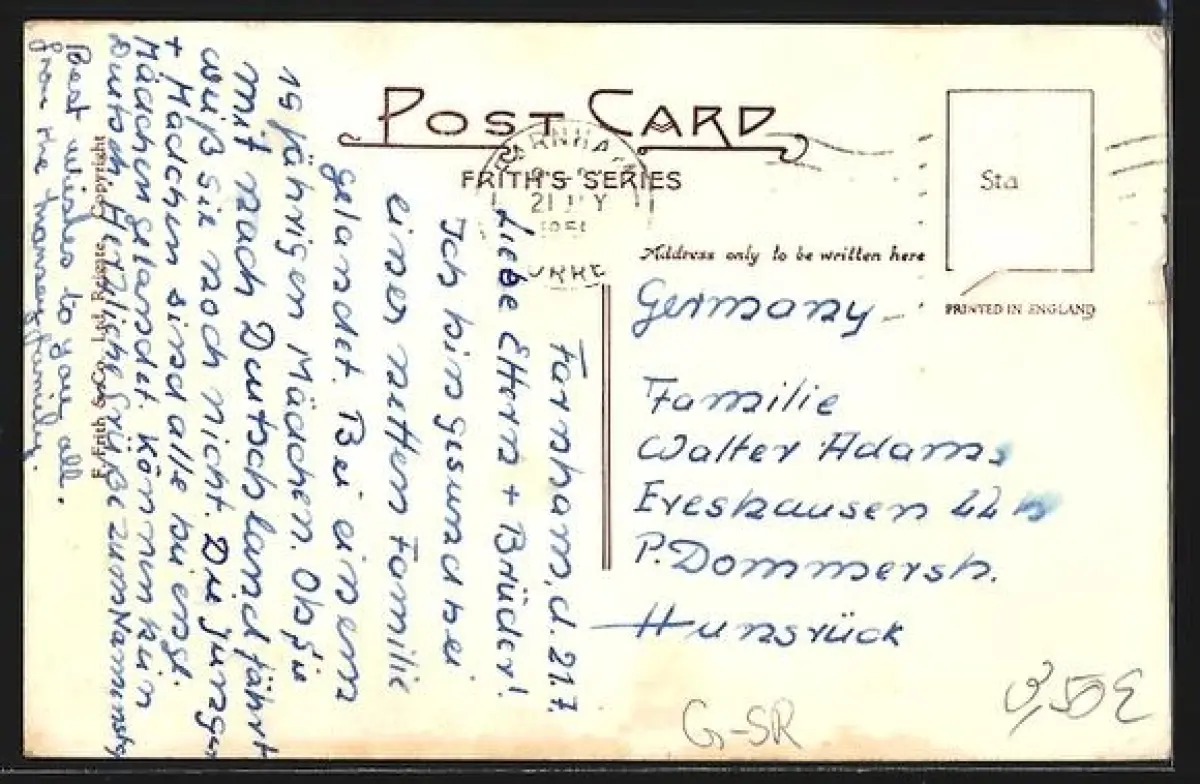 POST CARD
FRITH'S SERIES
21 JLY
Sta
Address only to be written here
PRINTED IN ENGLAND
Germany
Familie
Walter Adams
Eveshausen 22
P. Dommersh.
Hunsrück
Farnham, d. 21.7.
Liebe Eltern + Brüder!
Ich bin gesund bei
einer netten Familie
gelandet. Bei einem
19 jährigen Mädchen. Ob sie
mit nach Deutschland fährt
weiß sie noch nicht. Die Jungen
+ Mädchen sind alle bei engl.
Mädchen gelandet. Können kein
Deutsch. Herzliche Grüße zum Namenstag
Best wishes to you all.
from the family.
F. Frith & Co. Ltd. Reigate Copyright
G-SR
3,50 €